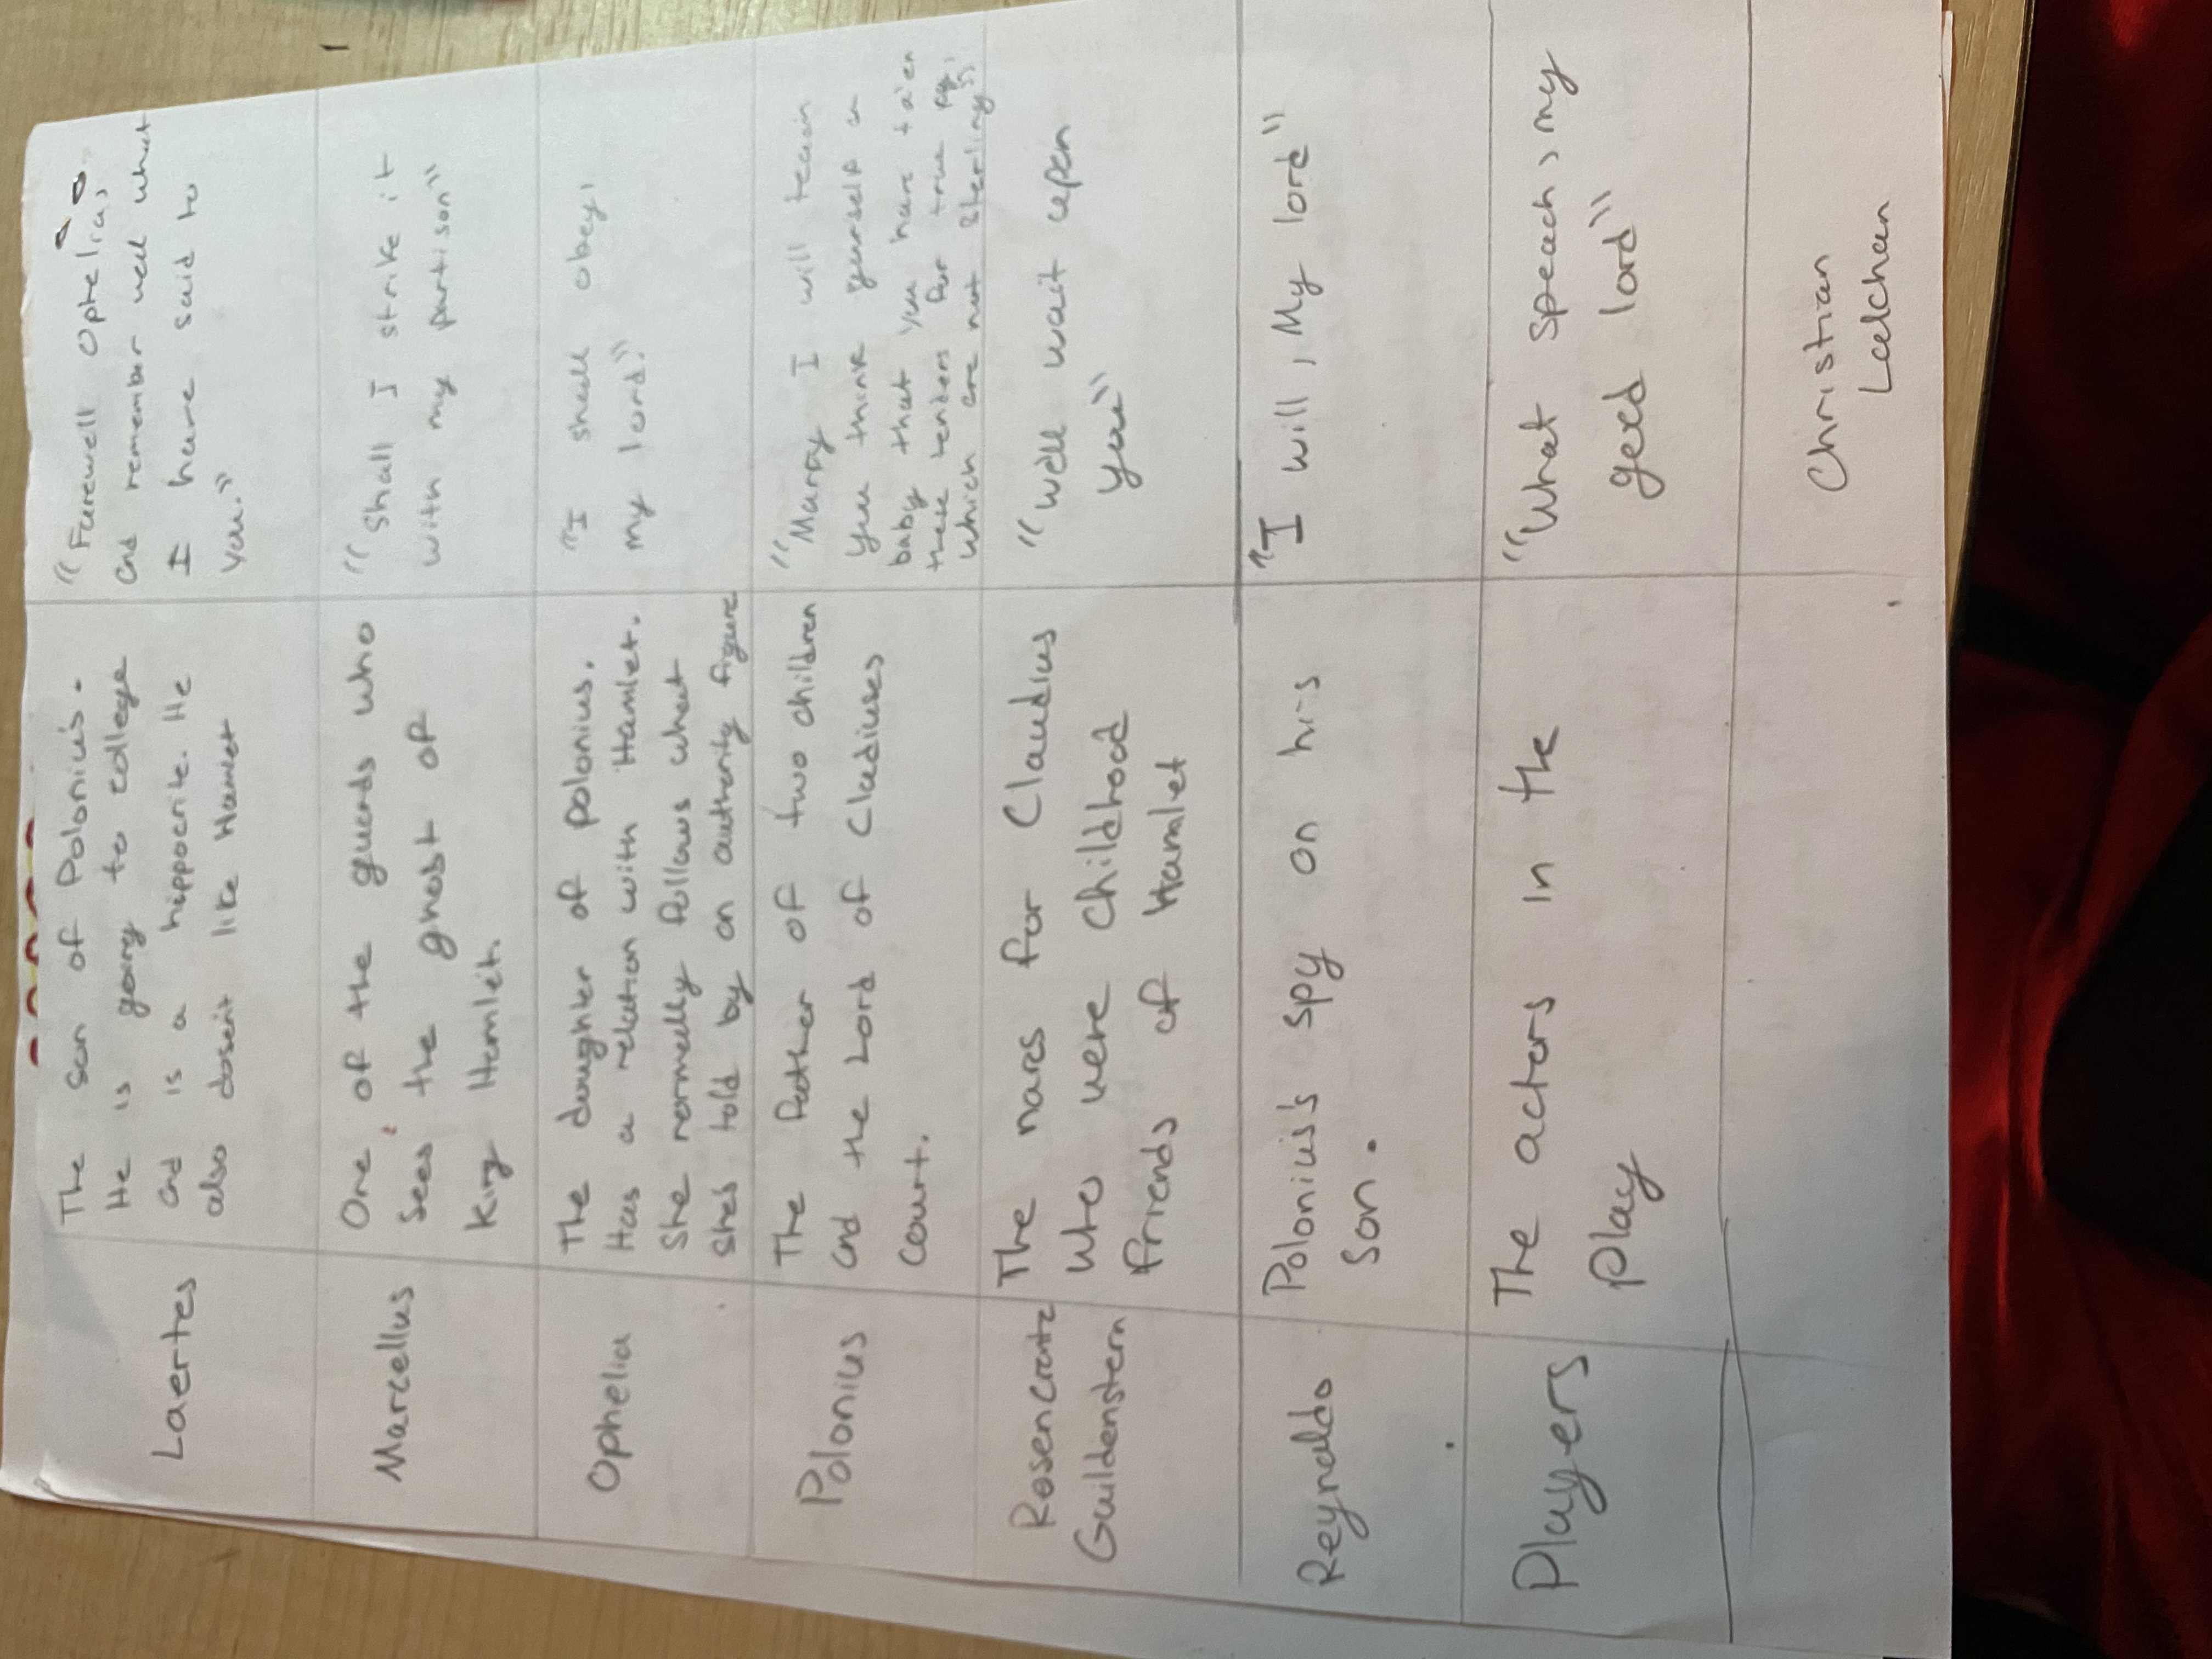 Laertes
The son of Polonius.
He is going to college
and is a hippocrite. He
also dosen't like Hamlet
"Farewell Ophelia,
and remember well what
I have said to
you."
Marcellus
One of the guards who
sees the ghost of
King Hamlet.
"Shall I strike it
with my partison"
Ophelia
The daughter of polonius.
Has a relation with Hamlet.
She normally follows what
she's told by an authority figure
"I shall obey,
my lord."
Polonius
The father of two children
and the Lord of Cladiuses
court.
"Marry I will teach
you think yourself a
baby that you have ta'en
these tenders for true
which are not Sterling"
Rosencrantz
Guildenstern
The narcs for Claudius
who were childhood
friends of Hamlet
"We'll wait upon
you"
Reynaldo
Polonius's spy on his
son.
"I will, My lord"
Players
The actors in the
play
"What speach, my
good lord"
Christian
Lalchan